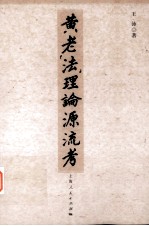 黄老「法」理論源流考
王沛 著
上海人民出版社